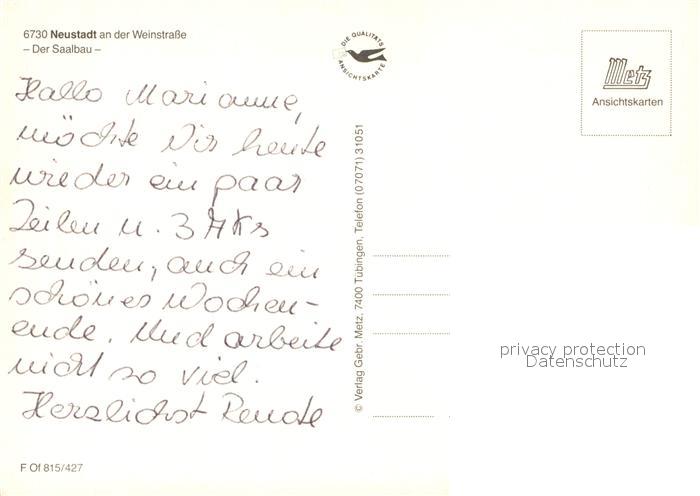 6730 Neustadt an der Weinstraße
– Der Saalbau –
DIE QUALITÄTS
ANSICHTSKARTE
Metz
Ansichtskarten
Hallo Marianne,
möchte Dir heute
wieder ein paar
Zeilen u. 3 AKs
senden, auch ein
schönes Wochen-
ende. Und arbeite
nicht so viel.
Herzlichst Renate
© Verlag Gebr. Metz, 7400 Tübingen, Telefon (07071) 31051
privacy protection
Datenschutz
F Of 815/427